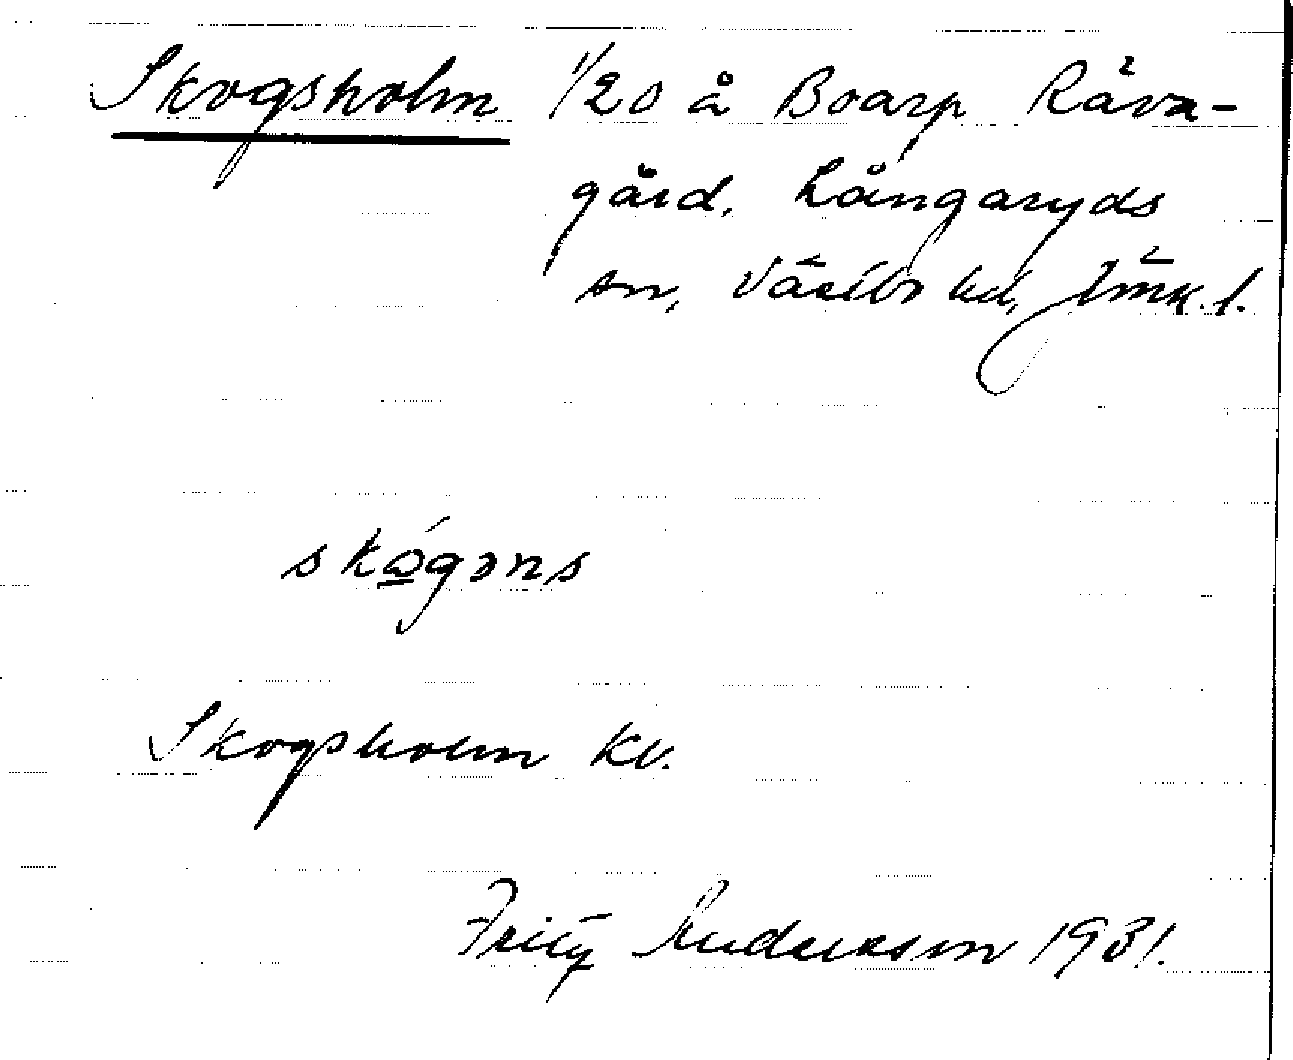 Skogsholm 1/20 å Boarp Råva-
gård, Långaryds
sn, Västbo hd, Jönk. l.
skógəns
Skogsholm Kv.
Fritz Andersson 1931.